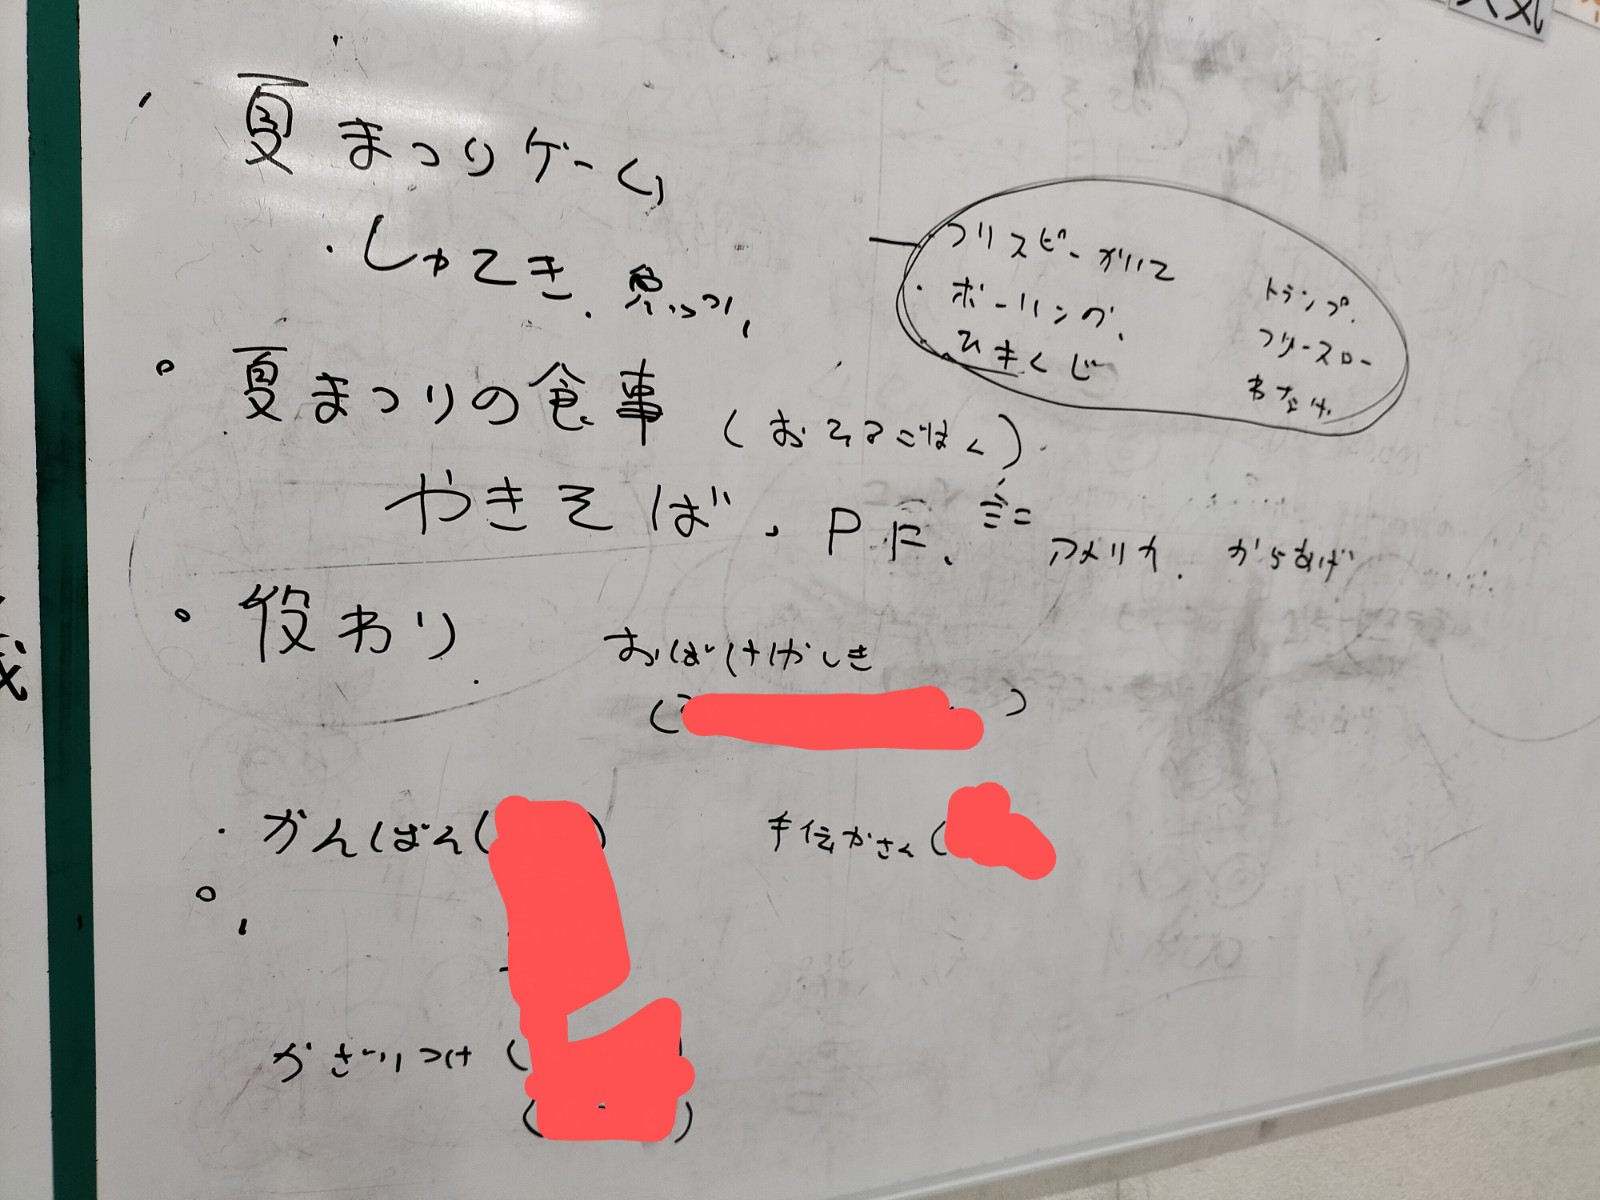 ・夏まつりゲーム
・しゃてき、魚つり、
・フリスビー
・ボーリング、
ひきくじ
トランプ、
フリースロー
わなげ、
○夏まつりの食事(おそろごはん)
やきそば、PF、ミニアメリカ、からあげ
○役わり
おばけやしき
( )
・かんばん( )
手伝かさん(
○、
かざりつけ(
( )
天気